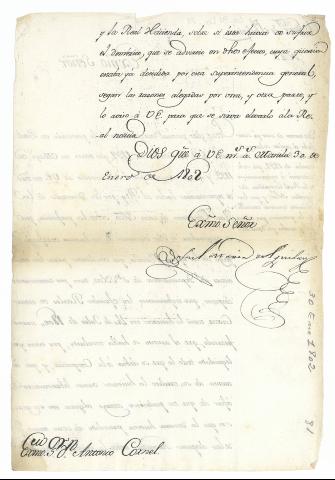 y la Real Hacienda, sobre si ésta havia de sufrir
el demérito, que se advierte en dhos efectos, cuya question
estaba ya decidida por esta superintendencia general,
segun las razones alegadas por una, y otra parte, y
lo aviso á V.E. para que se sirva elevarlo á la Re-
al noticia.
Dios gũe á V.E. m.s a.s Manila 30 de
Enero de 1802.
Exmo. Señor
Rafael Maria de Aguilar
Exmo. S.r D.n Antonio Cornel.
30 Ene 1802